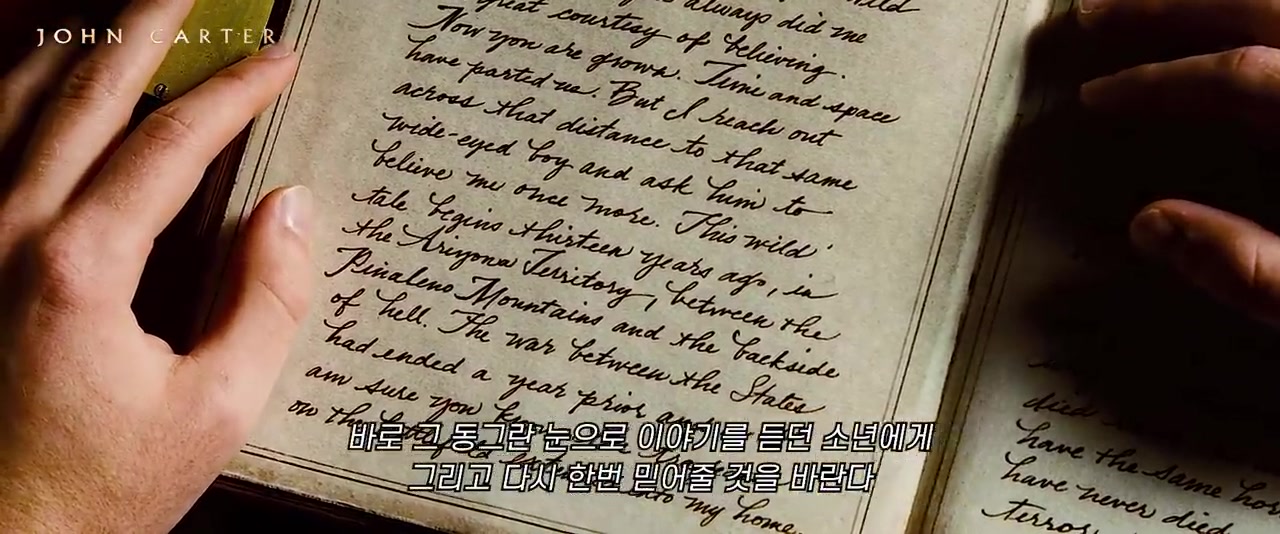 JOHN CARTER
always did me
great courtesy of believing.
Now you are grown. Time and space
have parted us. But I reach out
across that distance to that same
wide-eyed boy and ask him to
believe me once more. This wild
tale begins thirteen years ago, in
the Arizona Territory, between the
Pinaleno Mountains and the backside
of hell. The war between the States
had ended a year prior
am sure you
on the
into my home
바로 그 동그란 눈으로 이야기를 듣던 소년에게
그리고 다시 한번 믿어줄 것을 바란다
died
have the same
have never died
terror